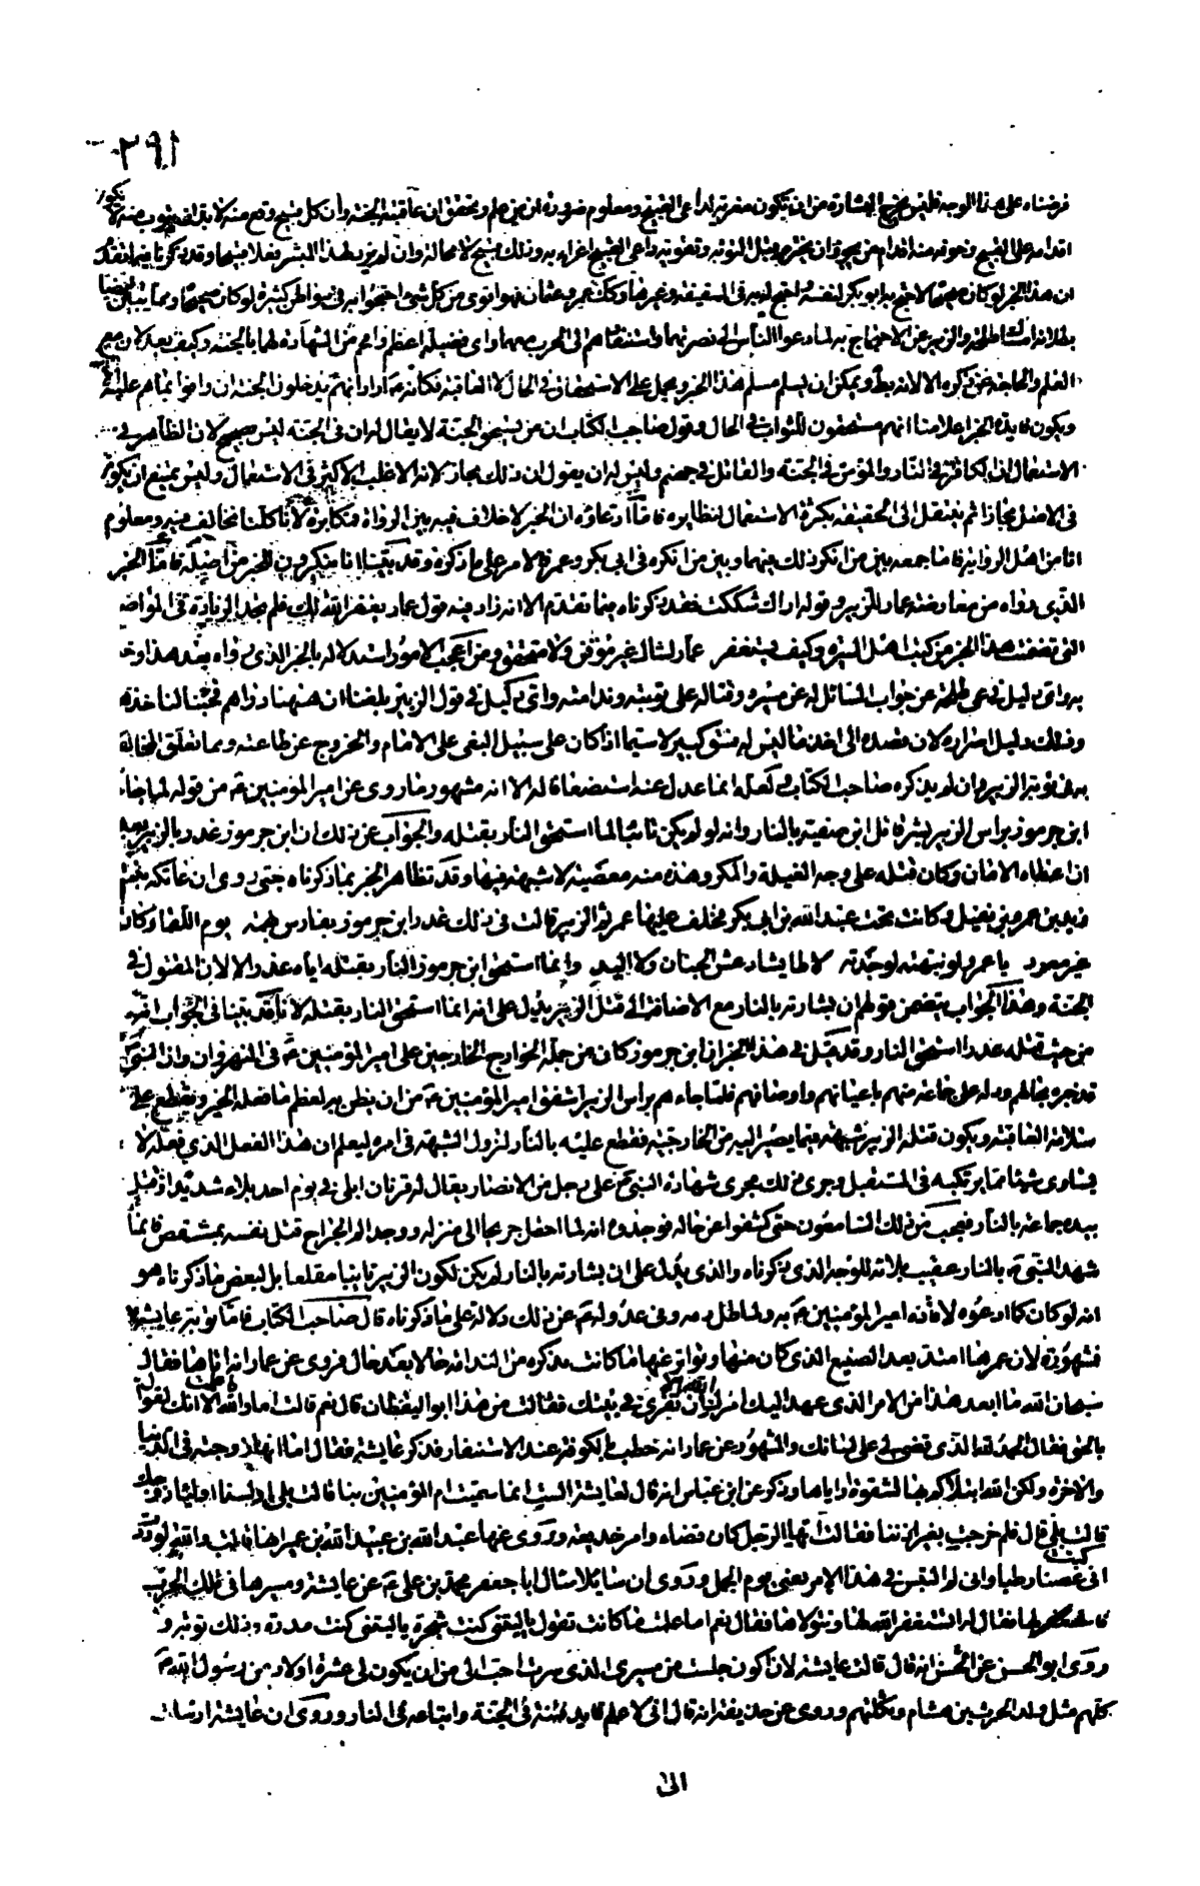 ٣٩١
فرضناه على هذا الوجه فليس يخرج البشارة من ان يكون مغرية لداعى القبيح ومعلوم ضرورة ان من علم وتحقق ان عاقبته الجنة وان كل قبيح وقع منه لا بد ان يتوب منه لا يكون
اقدامه على القبيح وخوفه منه اقدام من يجوز ان يخترم قبل التوبة وتقوية داعى القبيح اغراء به وذلك قبيح لا محالة وان لم يرد بهذا المبشر فعلا قبيحا وقد ذكرنا فيما تقدم
ان هذا الخبر لو كان صحيحا لاحتج به ابو بكر لنفسه واحتج له به فى السقيفة وغيرها وكذلك عمر وعثمان فهو اقوى من كل شئ احتجوا به فى مواطن كثيرة لو كان صحيحا ومما يبين ايضا
بطلانه امساك طلحة والزبير عن الاحتجاج به لما دعوا الناس الى نصرتهما واستنفارهم الى الحرب معهما واى فضيلة اعظم وافخم من الشهادة لهما بالجنة وكيف يعدلان مع
العلم والحاجة عن ذكره الا لانه باطل ويمكن ان يسلم مسلم هذا الخبر ويحمل على الاستحقاق فى الحال لا العاقبة فكانه ص اراد انهم يدخلون الجنة ان وافوا بما هم عليه الان
ويكون فايدة الخبر اعلامنا انهم مستحقون للثواب فى الحال وقول صاحب الكتاب ان من يستحق الجنة لا يقال انه فى الجنة ليس بصحيح لان الظاهر فى
الاستعمال ان الكافر فى النار والمؤمن فى الجنة والقاتل فى جهنم وليس له ان يقول ان ذلك مجاز لانه الاغلب الاكثر فى الاستعمال وليس يمتنع ان يكون
فى الاصل مجازا ثم ينتقل الى الحقيقة بكثرة الاستعمال لنظايره فاما ادعاؤه ان الخبر لا خلاف فيه بين الرواة فمكابرة لانا كلنا نخالف فيه ومعلوم
انا من اهل الرواية فاما جمعه بين من انكر ذلك فيهما وبين من انكره فى ابى بكر وعمر فالامر على ما ذكره وقد بينا انا منكرون للخبر من اصله فاما الخبر
الذى رواه من معارضة عمار للزبير وقوله اراك شككت فقد ذكرناه فيما تقدم الا انه زاد فيه قول عمار يغفر الله لك فلم نجد الزيادة فى المواضع
التى تضمنت هذا الخبر من كتب اهل السيرة وكيف يستغفر عمار لشاك غير موقن ولا متحقق ومن اعجب الامور استدلاله بالخبر الذى رواه بعد هذا وخبر
به واى دليل فى عى طلحة عن جواب السائل له عن مسيره وقتاله على توبته وندامته واى دليل فى قول الزبير بلغنا ان ههنا دراهم فجئنا لناخذها
وذلك دليل اصراره لان قصده الى اخذ ما ليس له فسق كبير لا سيما اذا كان على سبيل البغى على الامام والخروج عن طاعته ومما تعلق المخالف
به فى توبة الزبير وان لم يذكره صاحب الكتاب ولعله انما عدل عنه استضعافا له الا انه مشهور ما روى عن امير المؤمنين ع من قوله لما جاء
ابن جرموز براس الزبير بشر قاتل ابن صفية بالنار وانه لو لم يكن تائبا لما استحق النار بقتله والجواب عن ذلك ان ابن جرموز غدر بالزبير بعد
ان اعطاه الامان وكان قتله على وجه الغيلة والمكر وهذه منه معصية لا شبهة فيها وقد تظاهر الخبر بما ذكرناه حتى روى ان عاتكة بنت
زيد بن عمرو بن نفيل وكانت تحت عبد الله بن ابى بكر فخلف عليها عمر ثم الزبير قالت فى ذلك غدر ابن جرموز بفارس بهمة يوم اللقاء وكان
غير معرد يا عمرو لو نبهته لوجدته لا طايشا رعش الجنان ولا اليد وانما استحق ابن جرموز النار بقتله اياه غدرا لا لان المقتول فى
الجنة وهذا الجواب يتضمن قولهم ان بشارته بالنار مع الاضافة الى قتل الزبير يدل على انه انما استحق النار بقتله لانا قد بينا فى الجواب انه
من حيث قتله غدرا استحق النار وقد قيل فى هذا الخبر ان ابن جرموز كان من جملة الخوارج الخارجين على امير المؤمنين ع فى النهروان وان النبى ص
قد خبره بحالهم ودله على جماعة منهم باعيانهم واوصافهم فلما جاءهم براس الزبير اشفق امير المؤمنين ع من ان يظن به لعظم ما فعله الخير ويقطع على
سلامة العاقبة ويكون قتله الزبير شبهة فيما يصير اليه من الخارجية فقطع عليه بالنار لتزول الشبهة فى امره وليعلم ان هذا الفعل الذى فعله لا
يساوى شيئا مما يرتكبه فى المستقبل وجرى ذلك مجرى شهادة النبى ص على رجل من الانصار يقال له قزمان ابلى فى يوم احد بلاء شديدا وقتل
بيده جماعة بالنار فعجب من ذلك السامعون حتى كشفوا عن حاله فوجدوه انه لما احتمل جريحا الى منزله ووجد الم الجراح قتل نفسه بمشقص فانما
شهد النبى ص بالنار عقيب بلائه للوجه الذى ذكرناه والذى يدل على ان بشارته بالنار لم يكن لكون الزبير تايبا مقلعا بل لبعض ما ذكرناه هو
انه لو كان كما ادعوه لاقاده امير المؤمنين ع به ولما طل دمه وفى عدوله ع عن ذلك دلالة على ما ذكرناه قال صاحب الكتاب فاما توبة عايشة
فمشهورة لان عمرها امتد بعد الصنيع الذى كان منها وتواتر عنها ما كانت تذكره من الندامة حالا بعد حال فروى عن عمار انه اتاها فقال
سبحان الله ما ابعد هذا من الامر الذى عهد اليك امرك الله ان تقرى فى بيتك فقالت من هذا ابو اليقظان قال نعم قالت اما والله ما علمت الا انك لقوال
بالحق فقال الحمد لله الذى قضى لى على لسانك والمشهور عن عمار انه خطب بالكوفة عند الاستنفار فذكر عايشة فقال اما انها لزوجته فى الدنيا
والاخرة ولكن الله ابتلاكم بها لتتبعوه او اياها وذكر عن ابن عباس انه قال لعايشة الست انما سميت ام المؤمنين بنا قالت بلى قال اولسنا اولياء زوجك
قالت بلى قال فلم خرجت بغير اذننا فقالت ايها الرجل كان قضاء وامر خديعة وروى عنها عبد الله بن عبيد الله بن عمير انها قالت والله لوددت
انى كنت غصنا رطبا وانى لم التبس فى هذا الامر يعنى يوم الجمل وروى ان سايلا سال ابا جعفر محمد بن على ع عن عايشة ومسيرها فى تلك الحرب
فاستغفر لها فقال له اتستغفر لها وتتولاها فقال نعم اما علمت ما كانت تقول يا ليتنى كنت شجرة يا ليتنى كنت مدرة وذلك توبة و
روى ابو الحسن عن الحسن انه قال قالت عايشة لان اكون جلست من مسيرى الذى سرت احب الى من ان يكون لى عشرة اولاد من رسول الله ص
كلهم مثل ولد الحرث بن هشام وثكلتهم وروى عن حذيفة انه قال انى لاعلم قايد فتنة فى الجنة واتباعه فى النار وروى ان عايشة ارسلت
الى